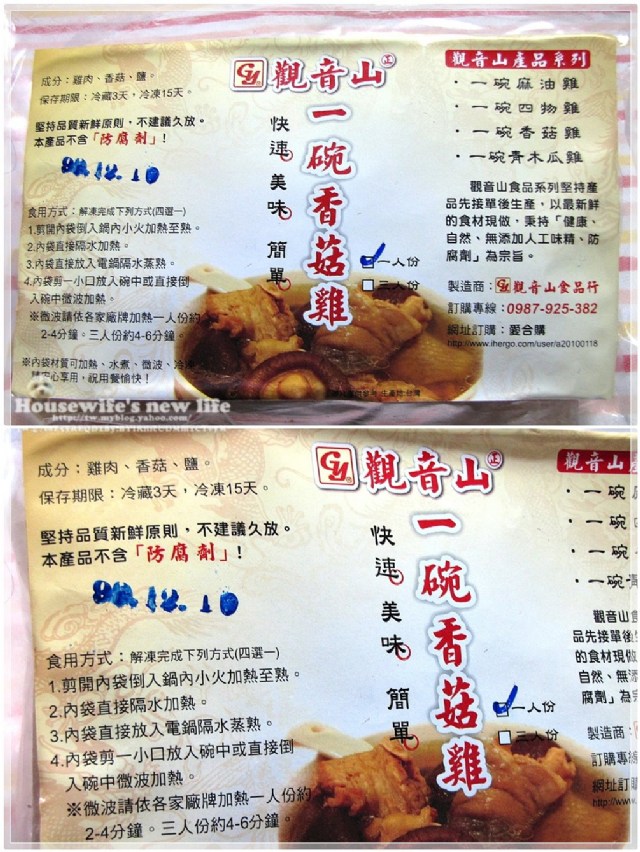 成分：雞肉、香菇、鹽。
保存期限：冷藏3天，冷凍15天。
堅持品質新鮮原則，不建議久放。
本產品不含「防腐劑」!
98.12.10
食用方式：解凍完成下列方式(四選一)
1.剪開內袋倒入鍋內小火加熱至熟。
2.內袋直接隔水加熱。
3.內袋直接放入電鍋隔水蒸熟。
4.內袋剪一小口放入碗中或直接倒
入碗中微波加熱。
※微波請依各家廠牌加熱一人份約
2-4分鐘。三人份約4-6分鐘。
※內袋材質可加熱、水煮、微波、冷凍
請安心享用，祝用餐愉快！
觀音山
正
一碗香菇雞
快速 美味 簡單
一人份
三人份
觀音山產品系列
・一碗麻油雞
・一碗四物雞
・一碗香菇雞
・一碗青木瓜雞
觀音山食品系列堅持產
品先接單後生產，以最新鮮
的食材現做，秉持「健康、
自然、無添加人工味精、防
腐劑」為宗旨。
製造商：觀音山食品行
訂購專線：0987-925-382
網址訂購：愛合購
http://www.ihergo.com/user/a20100118
Housewife's new life
http://tw.myblog.yahoo.com/
成分：雞肉、香菇、鹽。
保存期限：冷藏3天，冷凍15天。
堅持品質新鮮原則，不建議久放。
本產品不含「防腐劑」!
98.12.10
食用方式：解凍完成下列方式(四選一)
1.剪開內袋倒入鍋內小火加熱至熟。
2.內袋直接隔水加熱。
3.內袋直接放入電鍋隔水蒸熟。
4.內袋剪一小口放入碗中或直接倒
入碗中微波加熱。
※微波請依各家廠牌加熱一人份約
2-4分鐘。三人份約4-6分鐘。
觀音山
正
一碗香菇雞
快速 美味 簡單
一人份
三人份
觀音山
・一碗
・一碗
・一碗
・一碗
觀音山
品先接單後
的食材現做
自然、無添
腐劑」為宗
製造商：
訂購專線
網址訂
http://www.